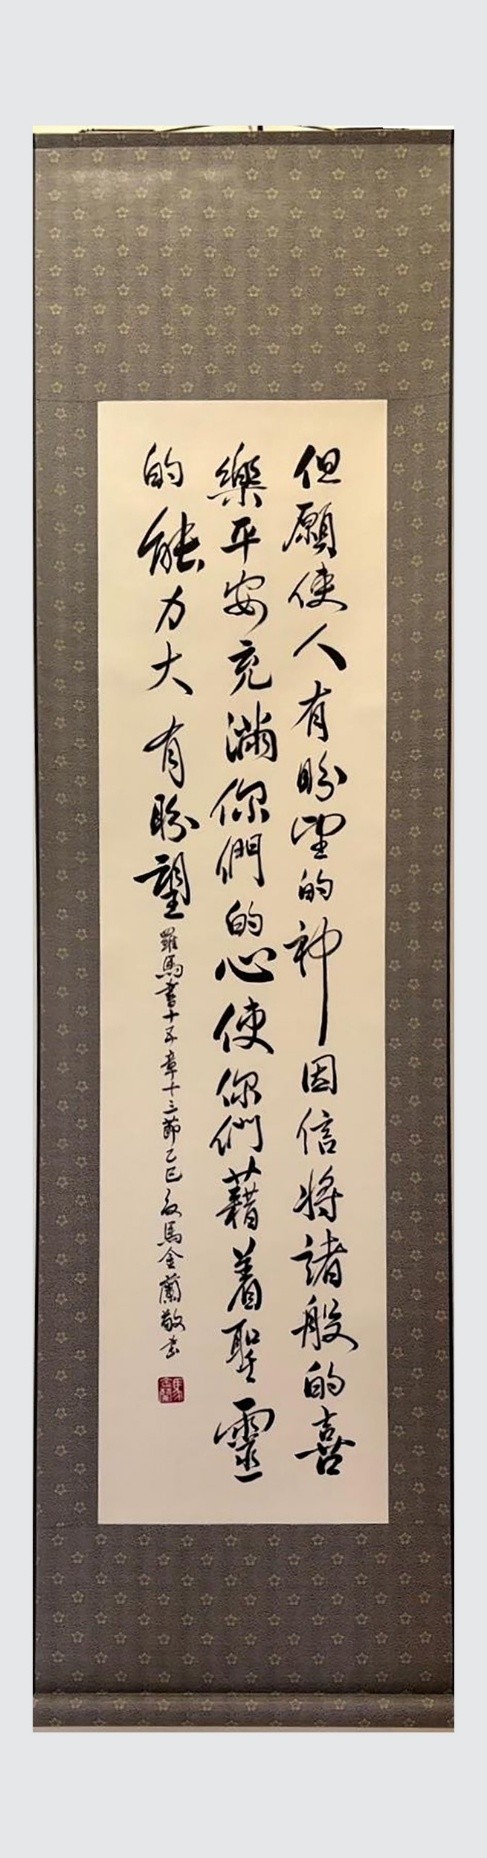 但願使人有盼望的神因信將諸般的喜
樂平安充滿你們的心使你們藉着聖靈
的能力大有盼望
羅馬書十五章十三節乙巳夏馬金蘭敬書